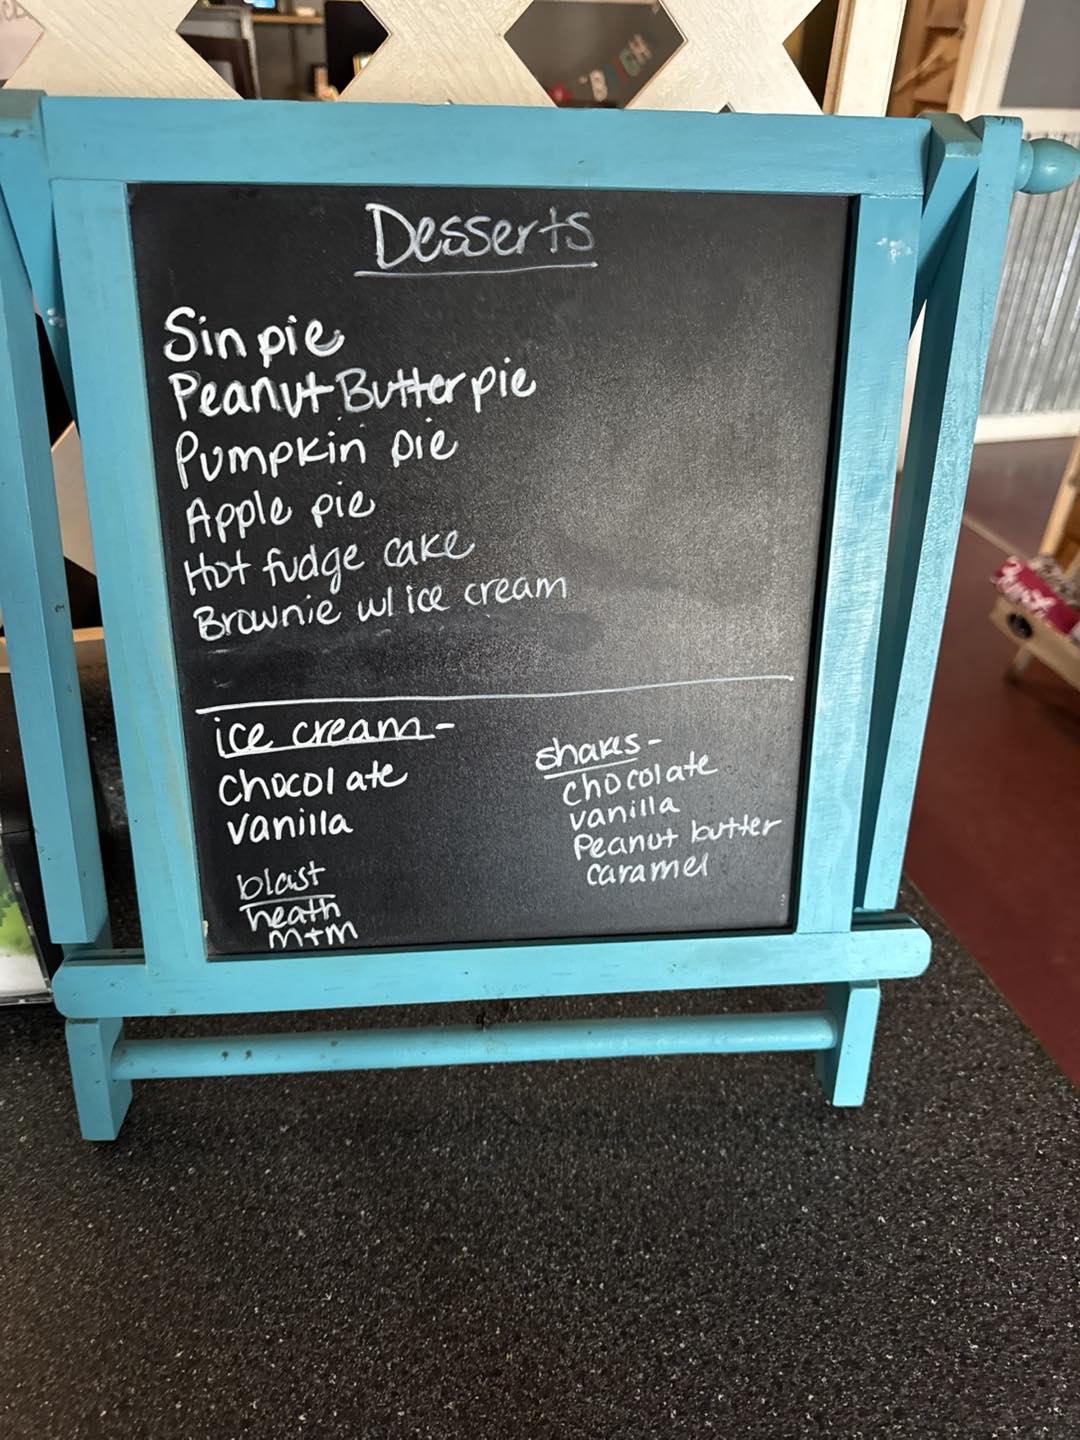 Desserts
Sin pie
Peanut Butter pie
Pumpkin pie
Apple pie
Hot fudge cake
Brownie w/ ice cream
ice cream-
chocolate
vanilla
blast
heath
m+m
shakes-
chocolate
vanilla
Peanut butter
caramel